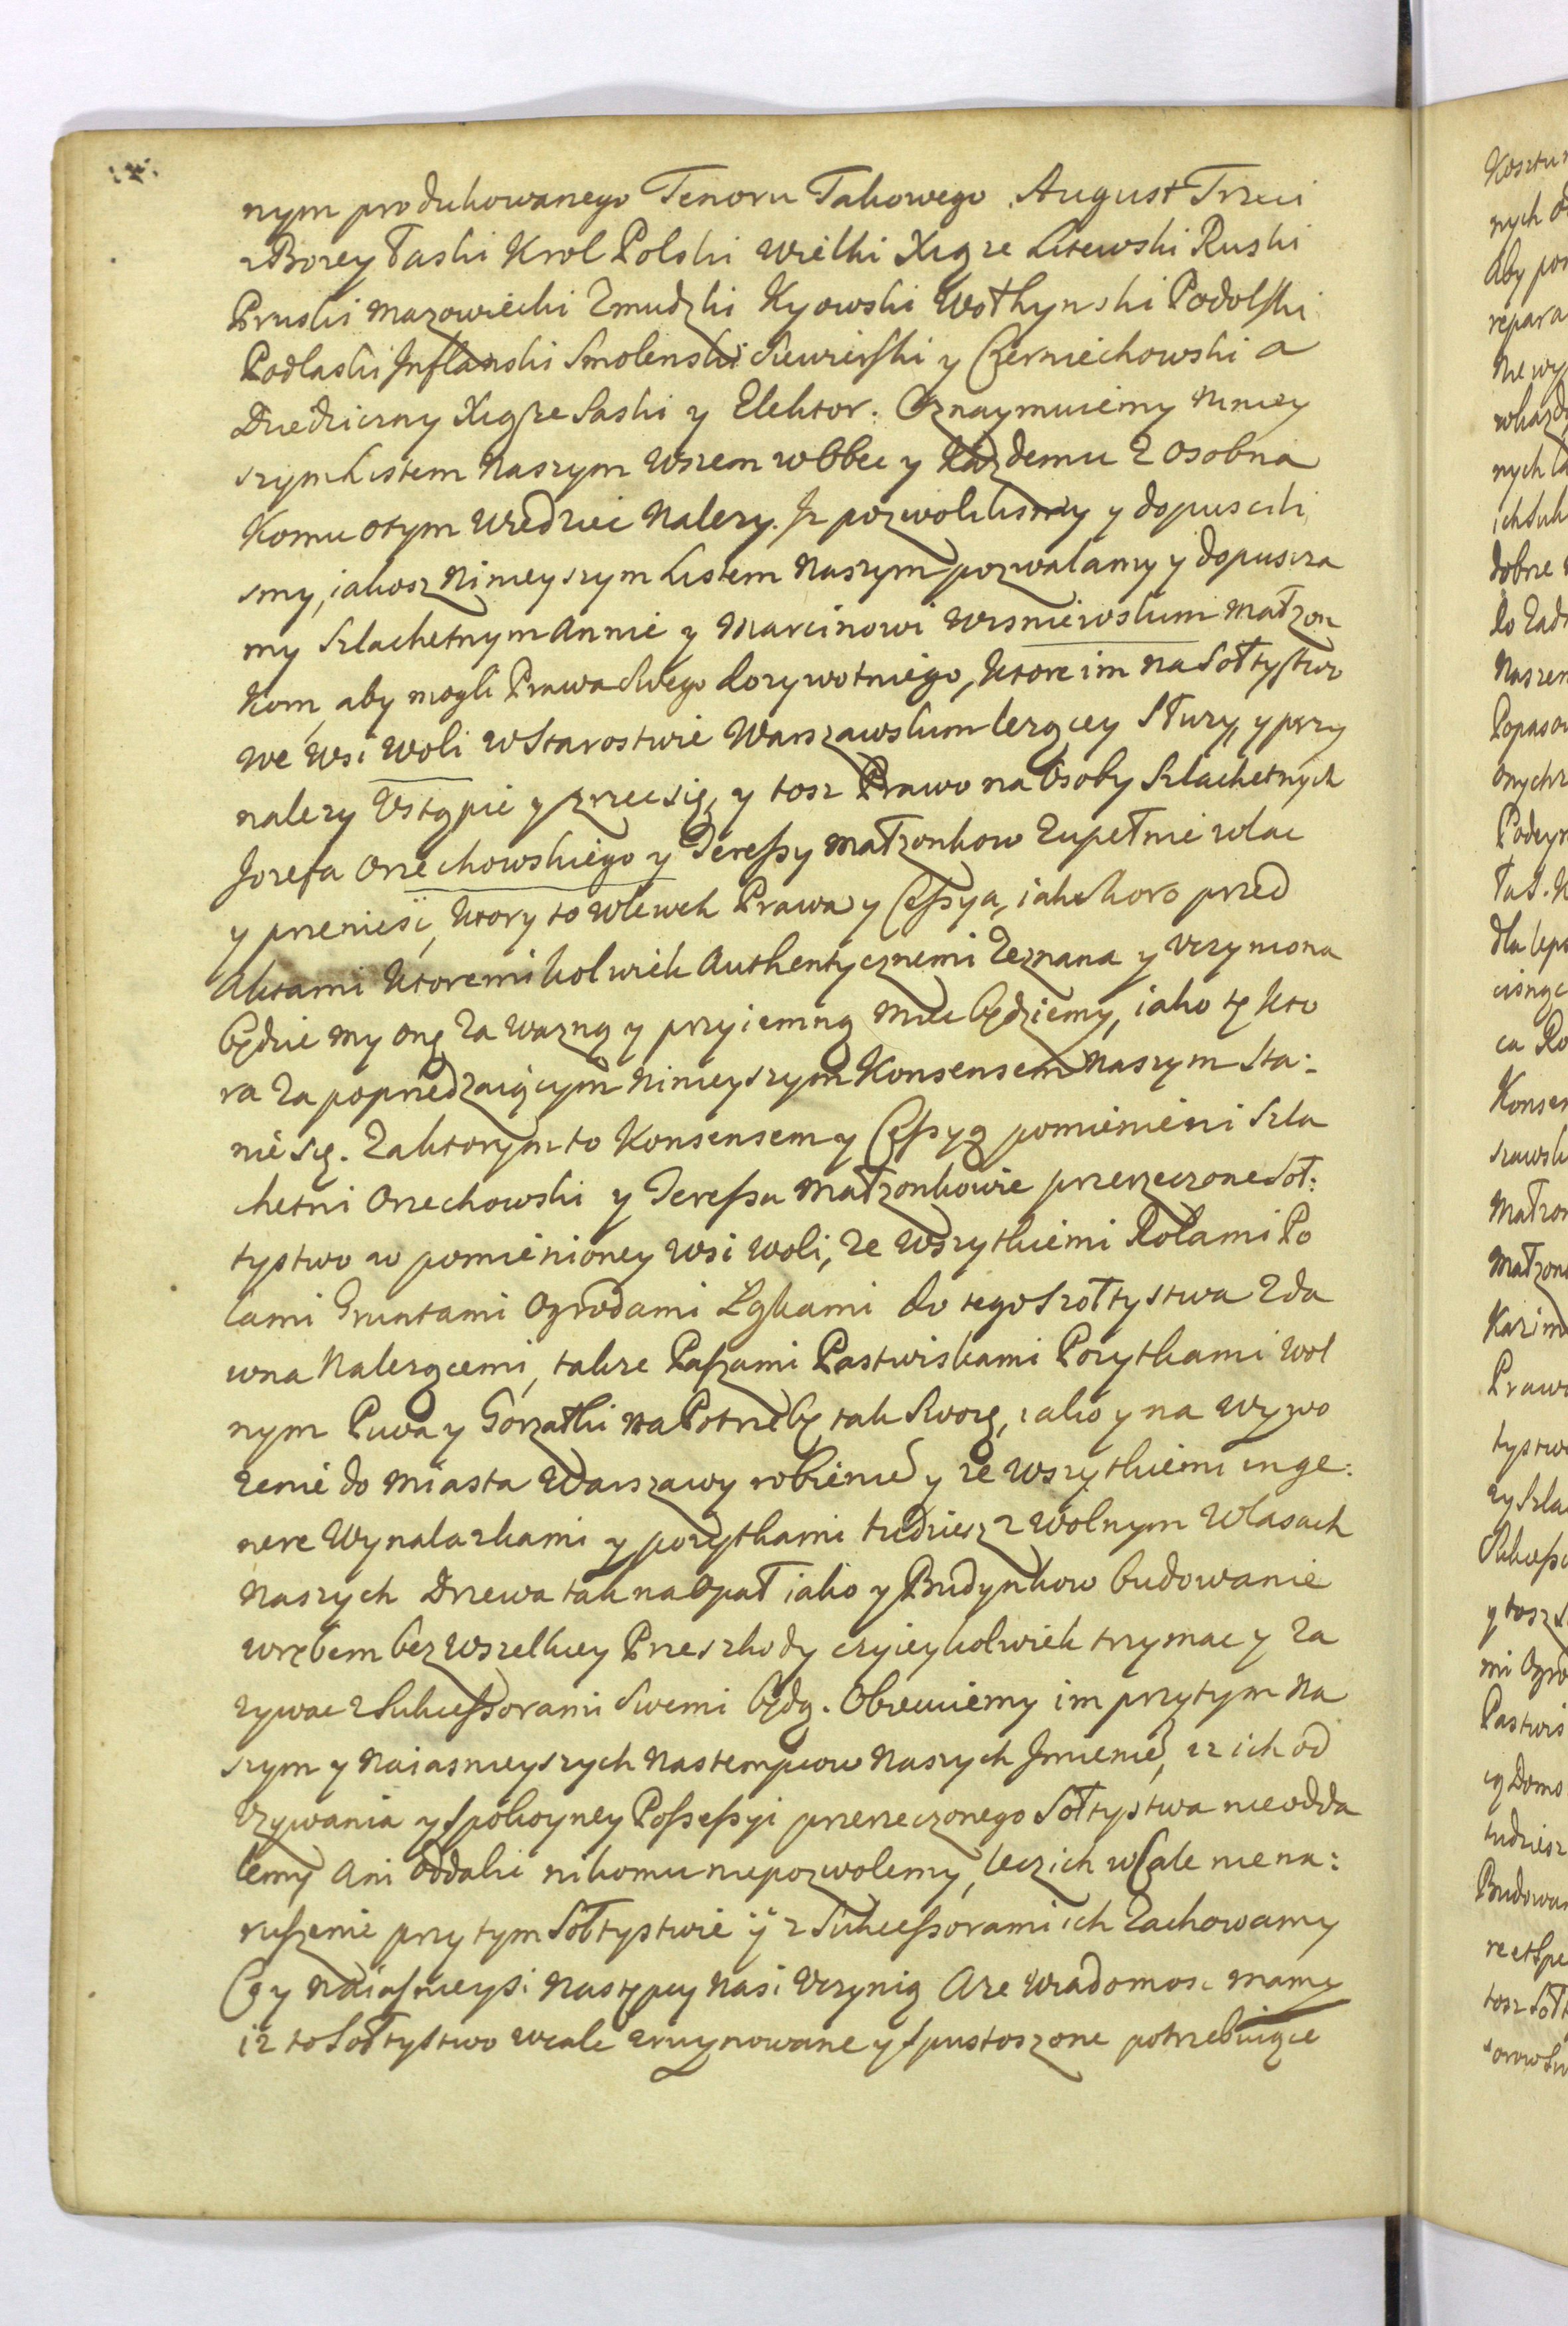 nym produkowanego Tenoru Takowego. August Trzeci
z Bozey Łaski Krol Polski Wielki Xiąze Litewski Ruski
Pruski Mazowiecki Zmudzki Kyowski Wołhynski Podolski
Podlaski Inflanski Smolenski Siewierski y Czerniechowski a
Dziedziczny Xiąze Saski y Elektor. Oznaymuiemy niniey
szym Listem Naszym wszem wobbec y kazdemu z osobna
Komu otym wiedziec nalezy. Iz pozwolilismy y dopuscili
smy, iakosz ninieyszym Listem Naszym pozwalamy y dopuszcza
my Szlachetnym Annie y Marcinowi Wisniewskim Małzon
kom, aby mogli Prawa Swego dozywotniego, ktore im na Sołtystwo
we Wsi Woli w Starostwie Warszawskim lezącey Słuzy, y przy
nalezy Ustąpic y zrzec się, y tosz Prawo na Osoby Szlachetnych
Jozefa Orzechowskiego y Teressy Małzonkow Zupełnie wlac
y przeniesc, ktory to wlewek Prawa y Cessya, iak skoro przed
Aktami ktoremikolwiek Authentycznemi Zeznana y Uczyniona
będzie my onę za wazną y przyiemną miec będziemy, iako tę kto
ra za poprzedzaiącym ninieyszym Konsensem Naszym sta:
nie się. Za ktorym to Konsensem y Cessyą pomienieni Szla
chetni Orzechowski y Teressa Małzonkowie przerzeczone Soł:
tystwo w pomienioney Wsi Woli, ze wszytkiemi Rolami Po
lami Gruntami Ogrodami Łąkami do tego Szołtystwa Zda
wna Nalezącemi, takze Paszami Pastwiskami Pozytkami wol
nym Piwa y Gorzałki na Potrzebę tak Swoię, iako y na Wywo
zenie do Miasta Warszawy robieniem y ze wszytkiemi in ge:
nere Wynalazkami y pozytkami tudziesz z wolnym w Lasach
Naszych Drzewa tak na Opał iako y Budynkow budowanie
wrębem bez wszelkiey Przeszkody czyieykolwiek trzymac y Za
zywac z Sukcessorami Swemi będą. Obiecuiemy im przytym Na
szym y Naiasnieyszych Nastempcow Naszych Imieniem, iz ich od
Uzywania y spokoyney Possessyi przerzeczonego Sołtystwa nieodda
lemy Ani Oddalic nikomu niepozwolemy, lecz ich wCale niena:
ruszenie przy tym Sołtystwie y z Sukcessorami ich Zachowamy
Co y Naiasnieysi Następcy Nasi Uczynią A ze wiadomosc mamy
iz to Sołtystwo wcale zruynowane y spustoszone potrzebuiące